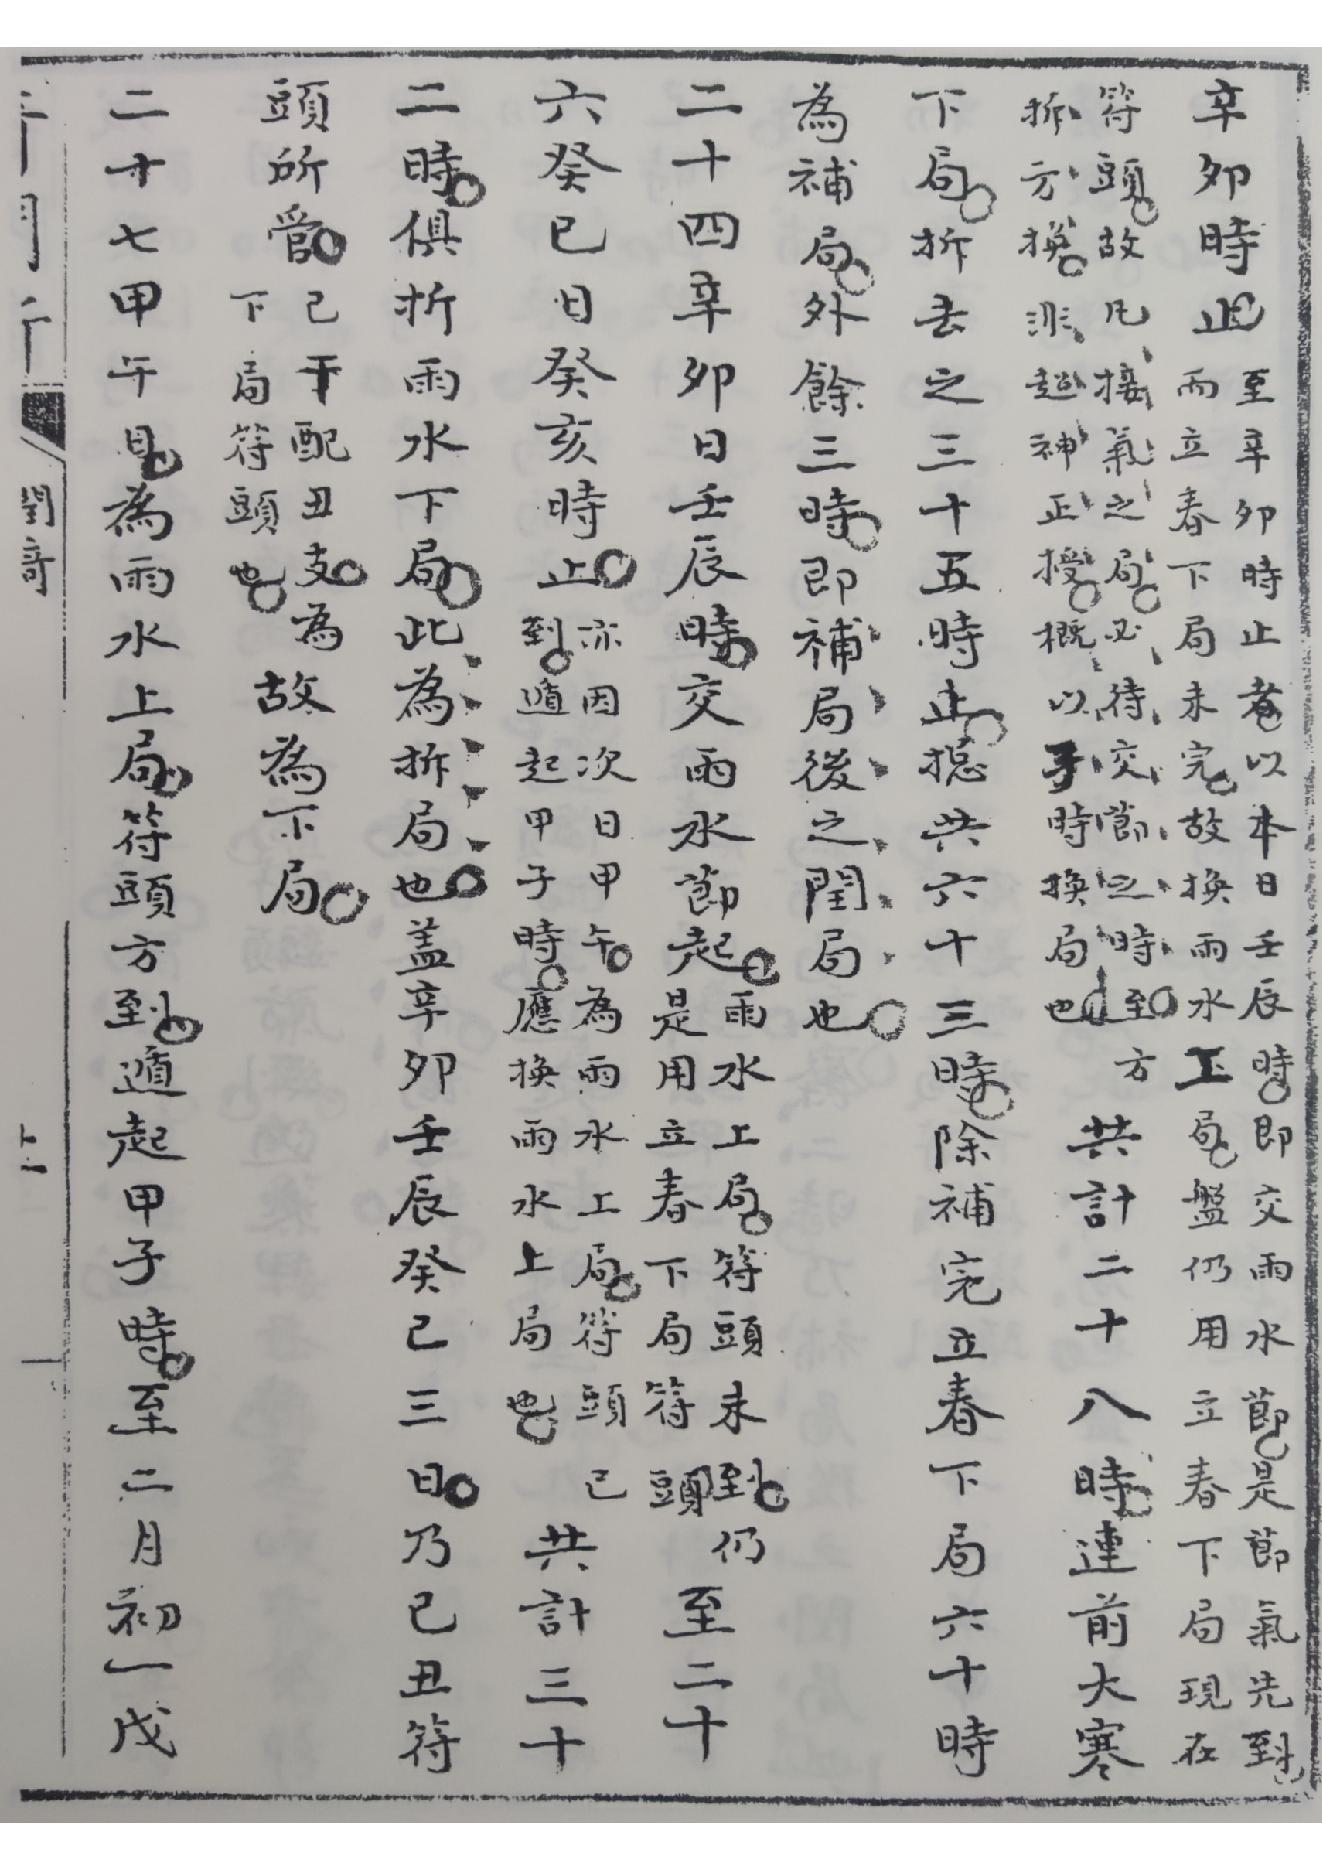 辛卯時止至辛卯時止者以本日壬辰時即交雨水節是節氣先到
而立春下局未完故換雨水上局盤仍用立春下局現在
符頭故凡接氣之局必待交節之時至方
拆方換非超神正授概以子時換局也共計二十八時連前大寒
下局拆去之三十五時止摠共六十三時除補完立春下局六十時
為補局外餘三時即補局後之閏局也
二十四辛卯日壬辰時交雨水節起雨水上局符頭未到仍
是用立春下局符頭至二十
六癸巳日癸亥時止亦因次日甲午為雨水上局符頭已
到遁起甲子時應換雨水上局也共計三十
二時俱折雨水下局此為拆局也蓋辛卯壬辰癸巳三日乃己丑符
頭所管己干配丑支為
下局符頭也故為下局
二十七甲午日為雨水上局符頭方到遁起甲子時至二月初一戊
閏奇